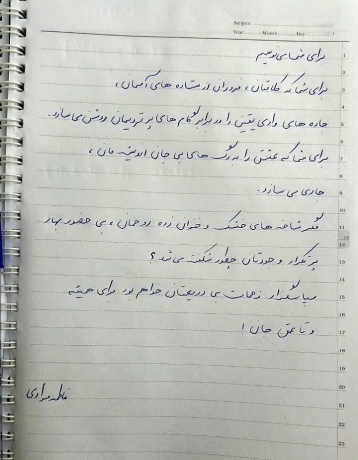 Subject:
Year Month Day
برای شما می‌نویسم
برای شما که کلامتان، فروزان از ستاده های آسمان،
جاده های وادی یقین را در برابر گام های پر تردیدمان روشن می سازد.
برای شما که عشق را در رگ های بی جان اندیشه مان،
جاری می سازد.
مگر شاخه های خشک و خزان زده روحمان، بی حضور بهار
پر تکرار وجودتان چطور شکفته می شد؟
سپاسگزار زحمات بی دریغتان خواهم بود برای همیشه
و تا عمق جان!
فاطمه مرادی